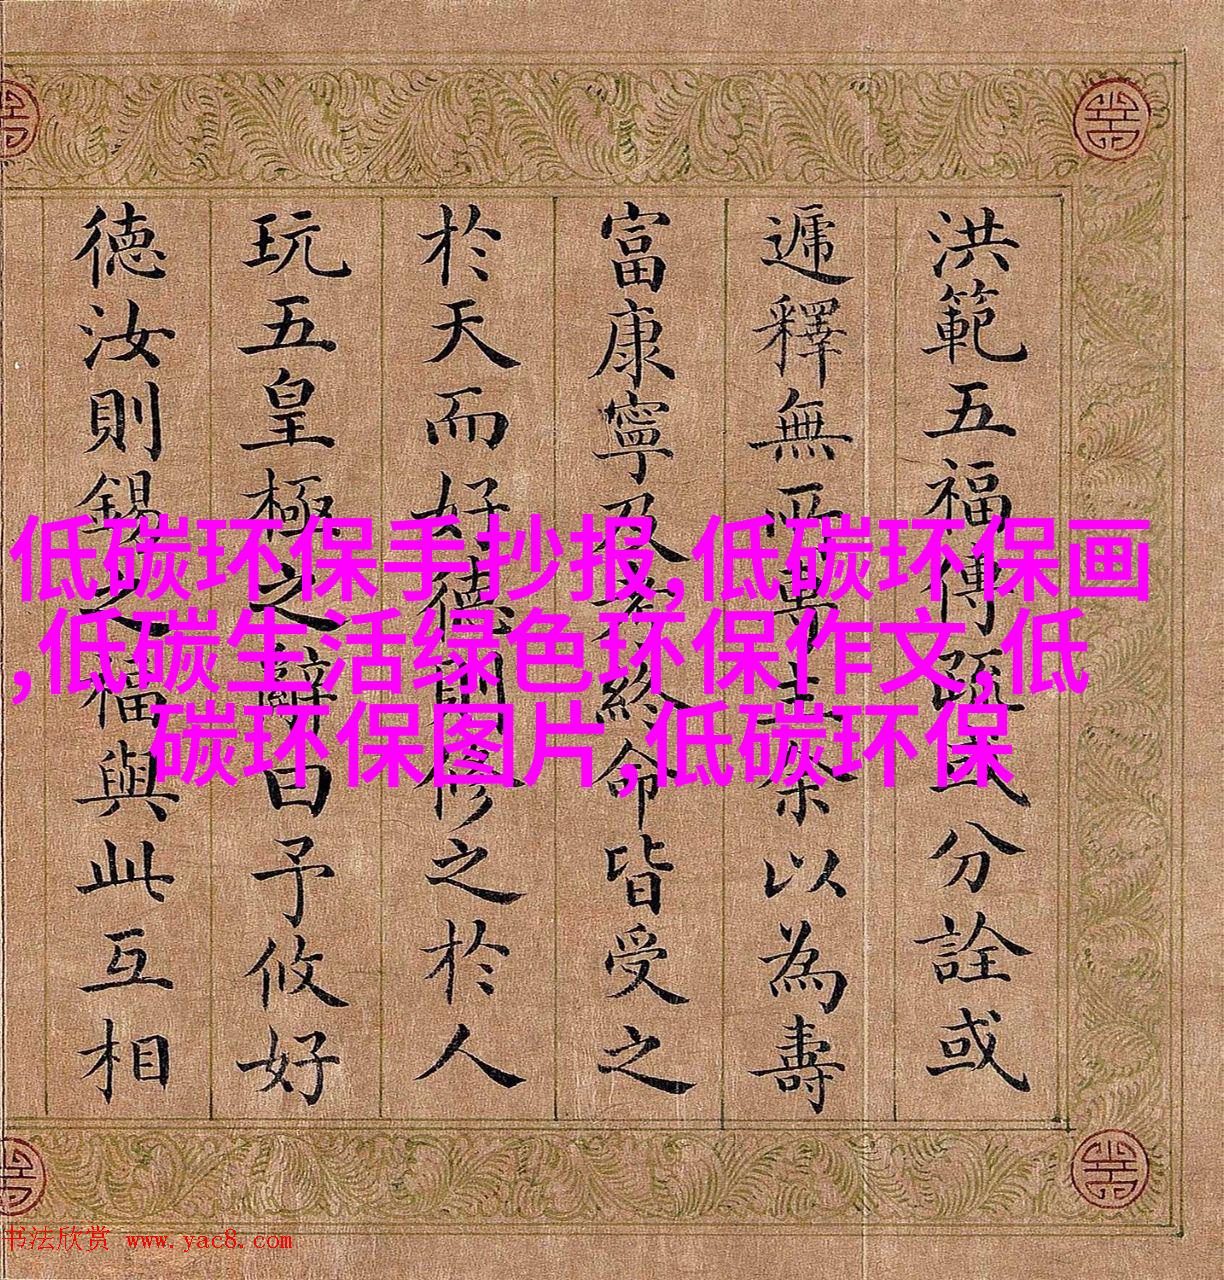 洪範五福傳分詮或
遞釋無所專主余以為壽
富康寧及考終命皆受之
於天而好德則修之於人
玩五皇極之辭曰予攸好
德汝則錫之福與此互相
低碳环保手抄报,低碳环保画
,低碳生活绿色环保作文,低
碳环保图片,低碳环保
书法欣赏 www.yac8.com